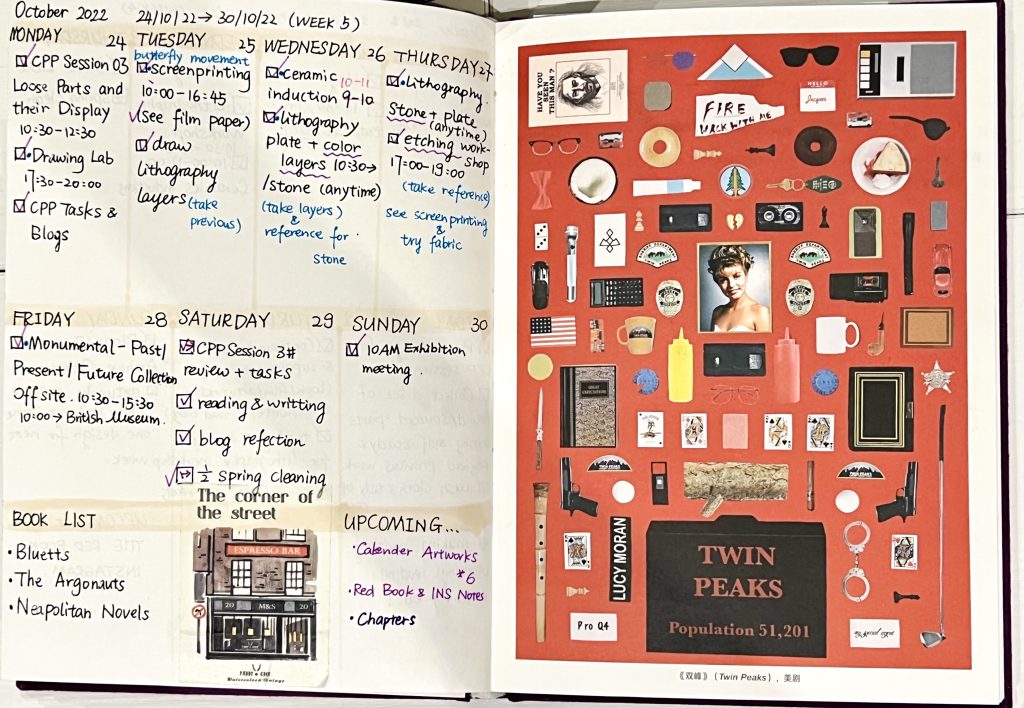 October 2022 24/10/22→30/10/22 (WEEK 5)
MONDAY 24
CPP Session 03
Loose Parts and
their Display
10:30-12:30
Drawing Lab
17:30-20:00
CPP Tasks &
Blogs
TUESDAY 25
butterfly movement
screenprinting
10:00-16:45
(see film paper)
draw
lithography
layers (take
previous)
WEDNESDAY 26
Ceramic 10-11
induction 9-10
lithography
plate + color
layers 10:30→
/stone (anytime)
(take layers)
&
reference for
stone
THURSDAY 27
Lithography
Stone + plate
(anytime)
etching work-
shop
17:00-19:00
(take reference)
see screenprinting
&
try fabric
FRIDAY 28
Monumental-Past/
Present/Future Collection
Offsite. 10:30-15:30
10:00→British Museum.
SATURDAY 29
CPP Session 3#
review + tasks
reading & writting
blog refection
1/2 spring cleaning
SUNDAY 30
10AM Exhibition
meeting.
BOOK LIST
• Bluetts
• The Argonauts
• Neapolitan Novels
The corner of
the street
ESPRESSO BAR
20 M&S 20
UPCOMING...
• Calender Artworks
*6
• Red Book & INS Notes
• Chapters
HAVE YOU
SEEN
THIS MAN?
FIRE
WALK WITH ME
HELLO
Jacques
GREAT
EXPECTATIONS
LUCY MORAN
TWIN
PEAKS
Population 51,201
Pro Q4
《双峰》(Twin Peaks)，美剧